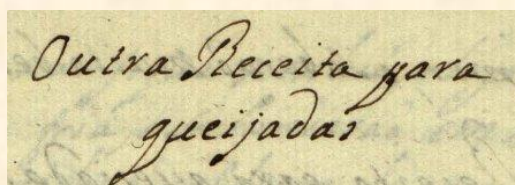 Outra Receita para
queijadas